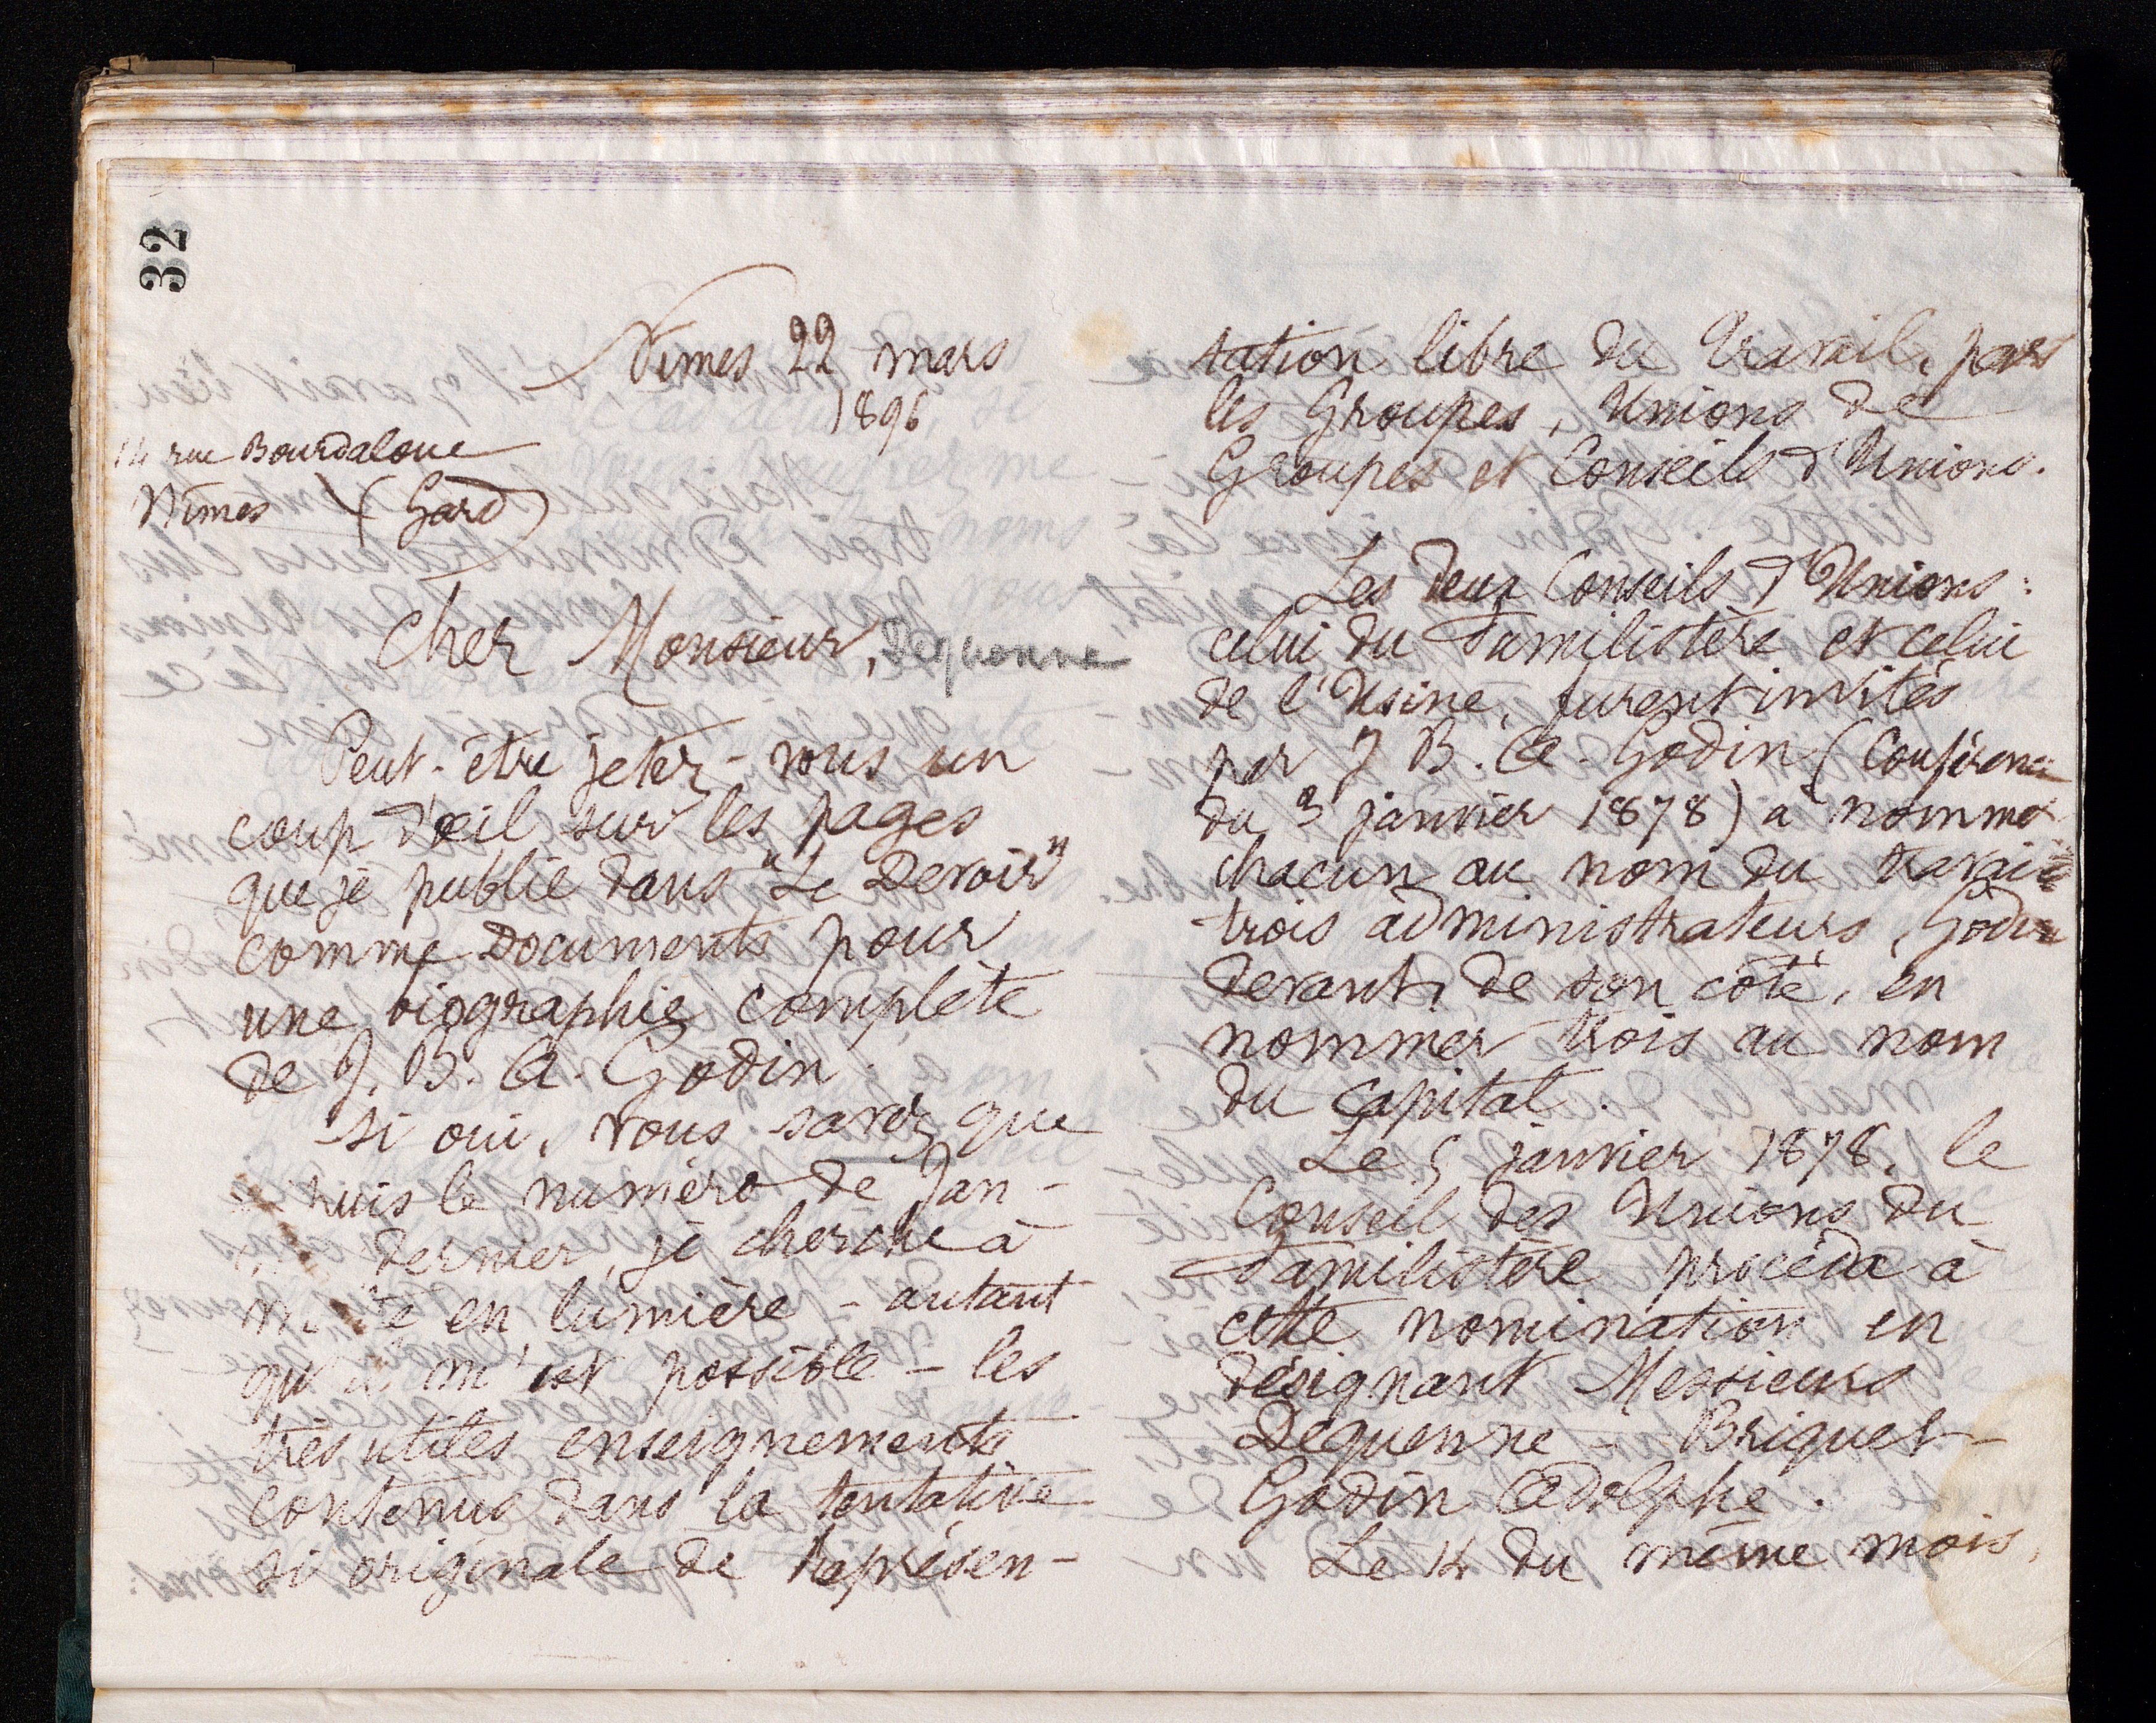 32
Nîmes 22 mars
1896
14 rue Bourdaloue
Nîmes (Gard)
Cher Monsieur, Dequenne
Peut-être jetez-vous un
coup d'œil sur les pages
que je publie dans "Le Devoir"
comme documents pour
une biographie complète
de J. B. A. Godin.
Si oui, vous savez que
puis le numéro de Jan-
dernier, je cherche à
en lumière - autant
qu'il m'est possible - les
très utiles enseignements
contenus dans la tentative
si originale de Représen-
tation libre du travail, par
les Groupes, Unions de
Groupes et Conseils d'Unions.
Les deux Conseils d'Unions :
celui du Familistère et celui
de l'Usine, furent invités
par J B. A. Godin (Conférence
du 3 janvier 1878) à nommer
chacun au nom du travail
trois administrateurs, Godin
devant, de son côté, en
nommer trois au nom
du capital.
Le 5 janvier 1878, le
Conseil des Unions du
Familistère procéda à
cette nomination en
désignant Messieurs
Dequenne - Briquet -
Godin Adolphe.
Le 14 du même mois,